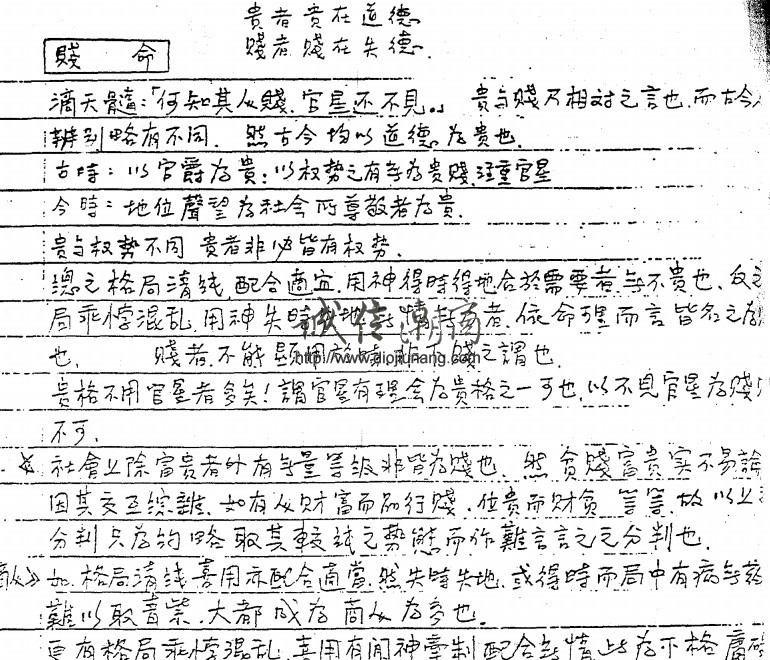 貴者貴在道德
賤者賤在失德.
賤 命
滴天髓:「何知其人賤,官星还不見。」 貴与賤乃相对之言也,而古今人
辨别略有不同. 然古今均以道德為贵也.
古時:以官爵為貴;以权势之有无為贵賤,注重官星
今時:地位聲望為社会所尊敬者為贵.
贵与权势不同 贵者非必皆有权势.
總之格局清纯,配合適宜,用神得時得地合於需要者,无不贵也,反之
局乖悖混乱,用神失時失地 者,依命理而言皆名之為
诚信潮涌
http://www.diojunang.com
也. 賤者,不能顕 非下賤之謂也.
贵格不用官星者多矣!謂官星有理会為贵格之一可也,以不見官星為賤
不可.
社會上除富贵者外有无量等级非皆為賤也. 然贫賤富贵实不易論
因其交互综雜. 如有人财富而品行賤,位贵而财贫 等等,故以上
分判只為约略取其較 之势態而作難言言之之分判也.
如.格局清纯喜用亦配合適當,然失時失地,或得時而局中有病无药
難以取青紫.大都成為商人為多也.
更有格局乖悖混乱,喜用有闲神牽制配合无情,此為下格